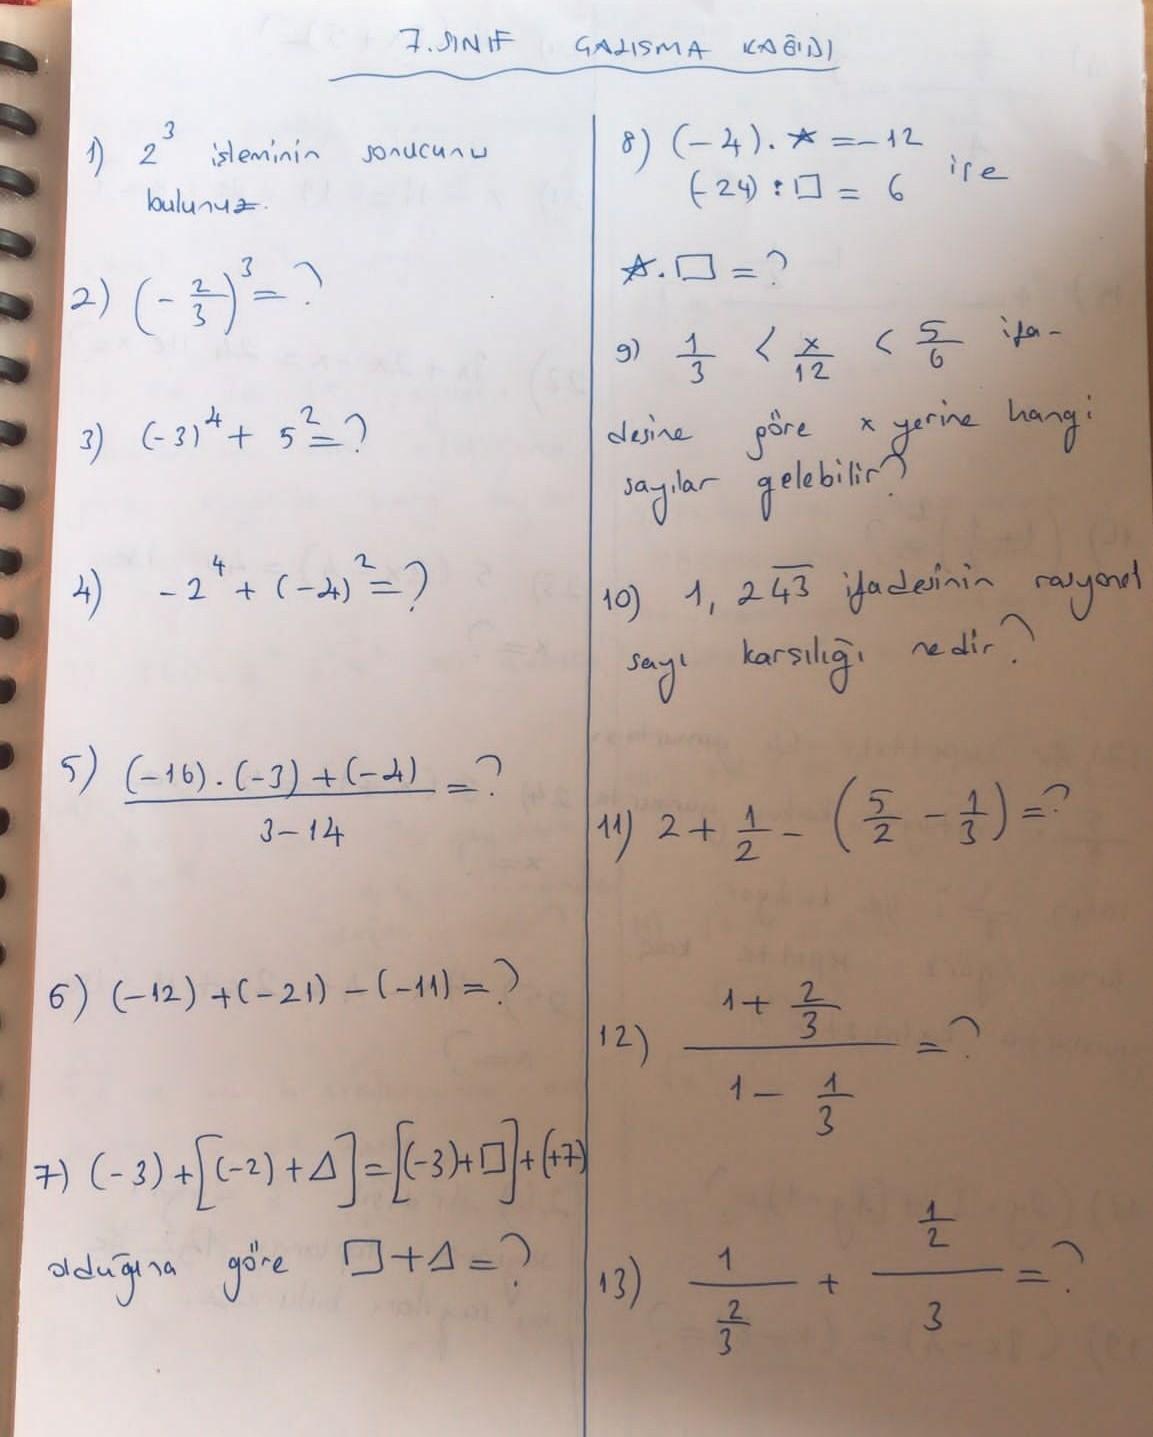 7. SINIF ÇALISMA KAĞIDI
1) 2³ işleminin sonucunu
bulunuz.
2) (-2/3)³ = ?
3) (-3)⁴ + 5² = ?
4) -2⁴ + (-4)² = ?
5) (-16).(-3)+(-4) / 3-14 = ?
6) (-12)+(-21)-(-11) = ?
7) (-3)+[(-2)+Δ]=[(-3)+□]+(+7)
olduğına göre □+Δ=?
8) (-4).☆=-12
(-24):□=6 ise
☆.□=?
9) 1/3 < x/12 < 5/6 ifa-
desine göre x yerine hangi
sayılar gelebilir?
10) 1,24̅3̅ ifadesinin rasyonel
sayı karsılığı nedir?
11) 2 + 1/2 - (5/2 - 1/3) = ?
12) (1 + 2/3) / (1 - 1/3) = ?
13) 1 / (2/3) + (1/2) / 3 = ?